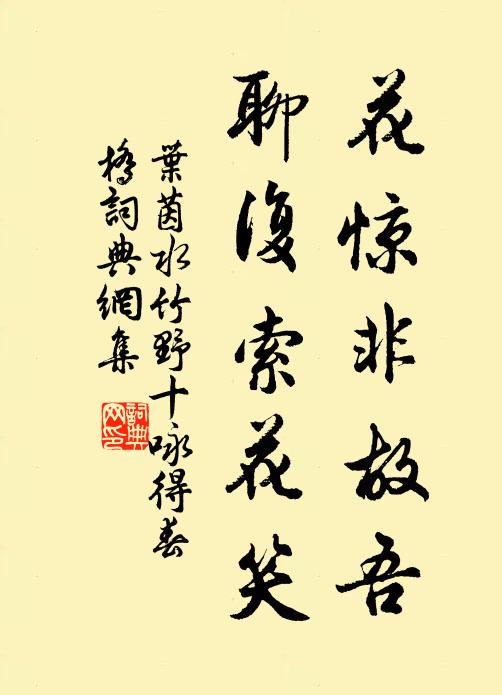 花惊非故吾
聊復索花笑
葉茵水竹野十咏得春
橋詞典網集
詞典
网印